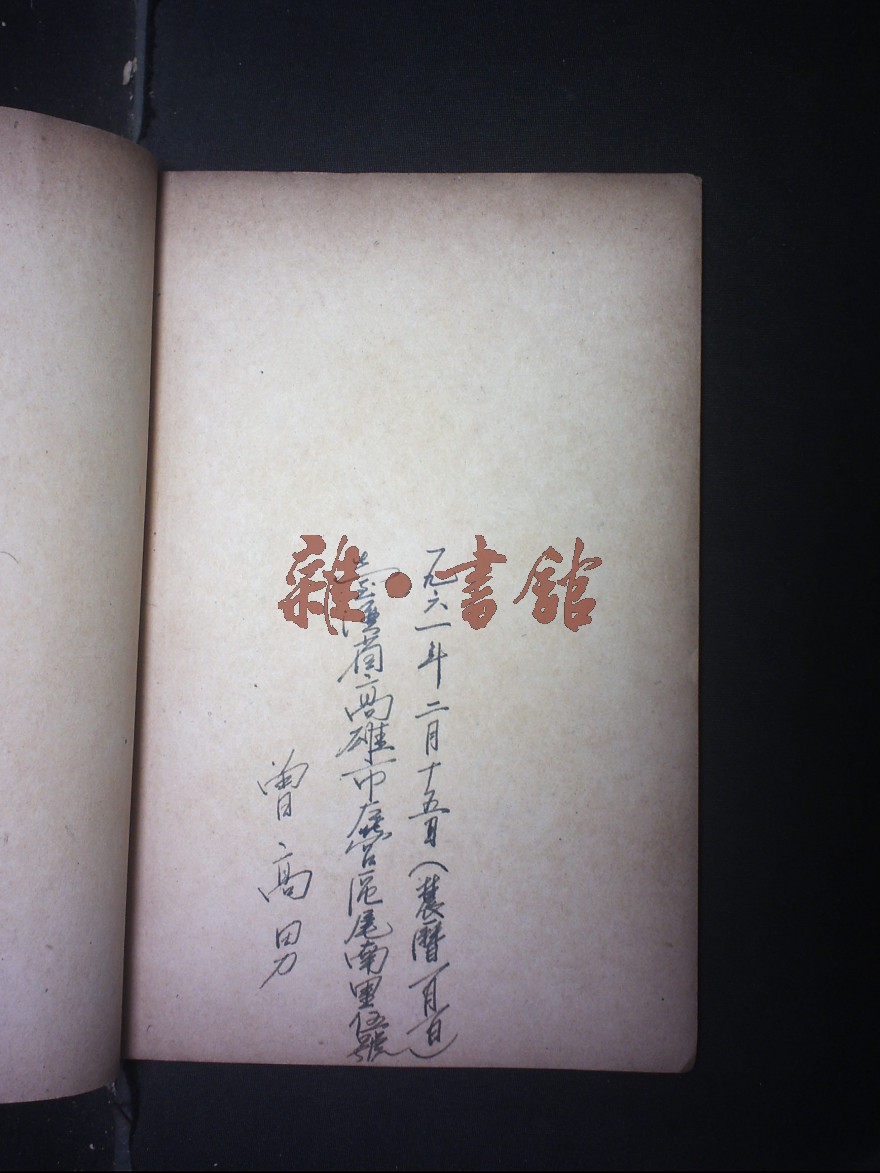 一九六一年二月十五日（農曆一月一日）
臺灣省高雄市左營區尾南里伍號
曾高男
雜·書館